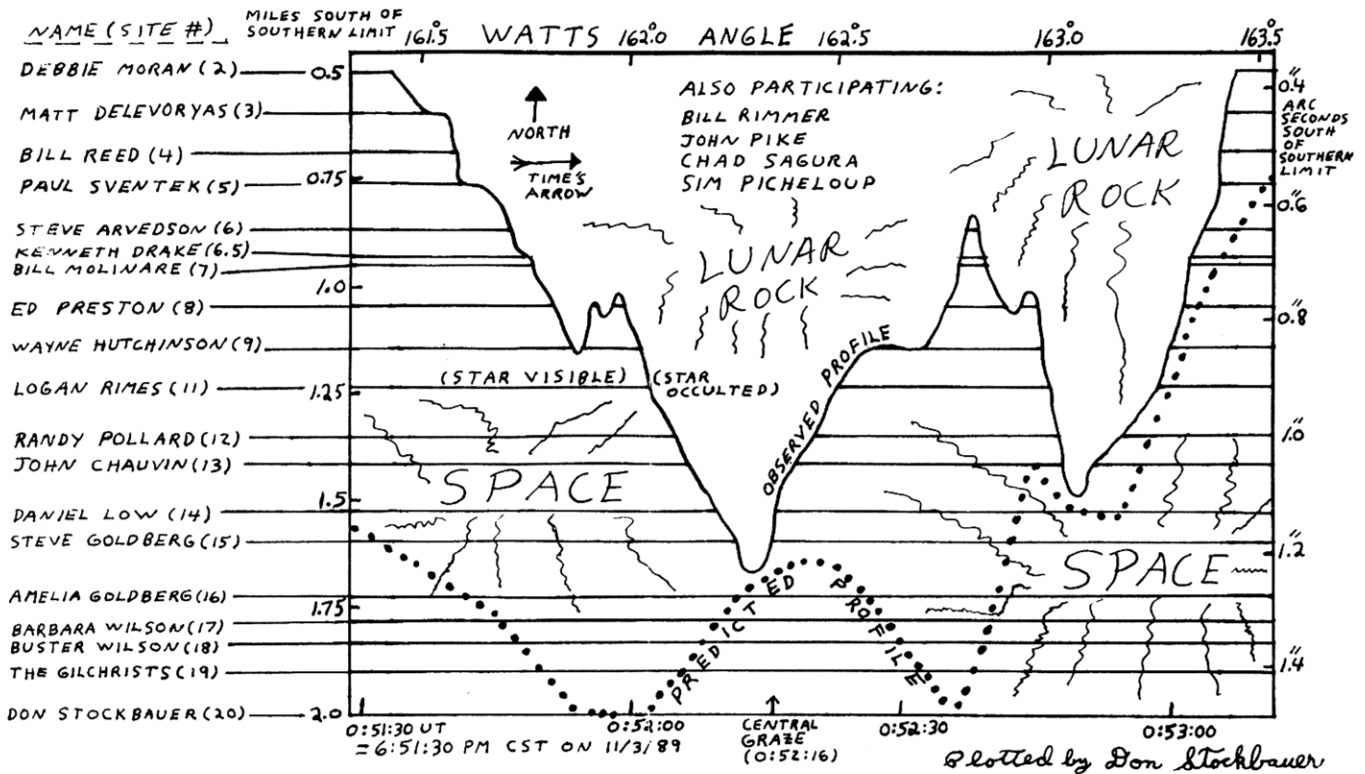 NAME (SITE #)
MILES SOUTH OF
SOUTHERN LIMIT
161.5° WATTS 162.0° ANGLE 162.5° 163.0° 163.5°
DEBBIE MORAN (2)
MATT DELEVORYAS (3)
BILL REED (4)
PAUL SVENTEK (5)
STEVE ARVEDSON (6)
KENNETH DRAKE (6.5)
BILL MOLINARE (7)
ED PRESTON (8)
WAYNE HUTCHINSON (9)
LOGAN RIMES (11)
RANDY POLLARD (12)
JOHN CHAUVIN (13)
DANIEL LOW (14)
STEVE GOLDBERG (15)
AMELIA GOLDBERG (16)
BARBARA WILSON (17)
BUSTER WILSON (18)
THE GILCHRISTS (19)
DON STOCKBAUER (20)
0.5
0.75
1.0
1.25
1.5
1.75
2.0
NORTH
TIME'S
ARROW
ALSO PARTICIPATING:
BILL RIMMER
JOHN PIKE
CHAD SAGURA
SIM PICHELOUP
LUNAR
ROCK
LUNAR
ROCK
(STAR VISIBLE)
(STAR
OCCULTED)
OBSERVED PROFILE
SPACE
SPACE
PREDICTED PROFILE
0.4"
ARC
SECONDS
SOUTH
OF
SOUTHERN
LIMIT
0.6"
0.8"
1.0"
1.2"
1.4"
0:51:30 UT
=6:51:30 PM CST ON 11/3/89
0:52:00
CENTRAL
GRAZE
(0:52:16)
0:52:30
0:53:00
Plotted by Don Stockbauer